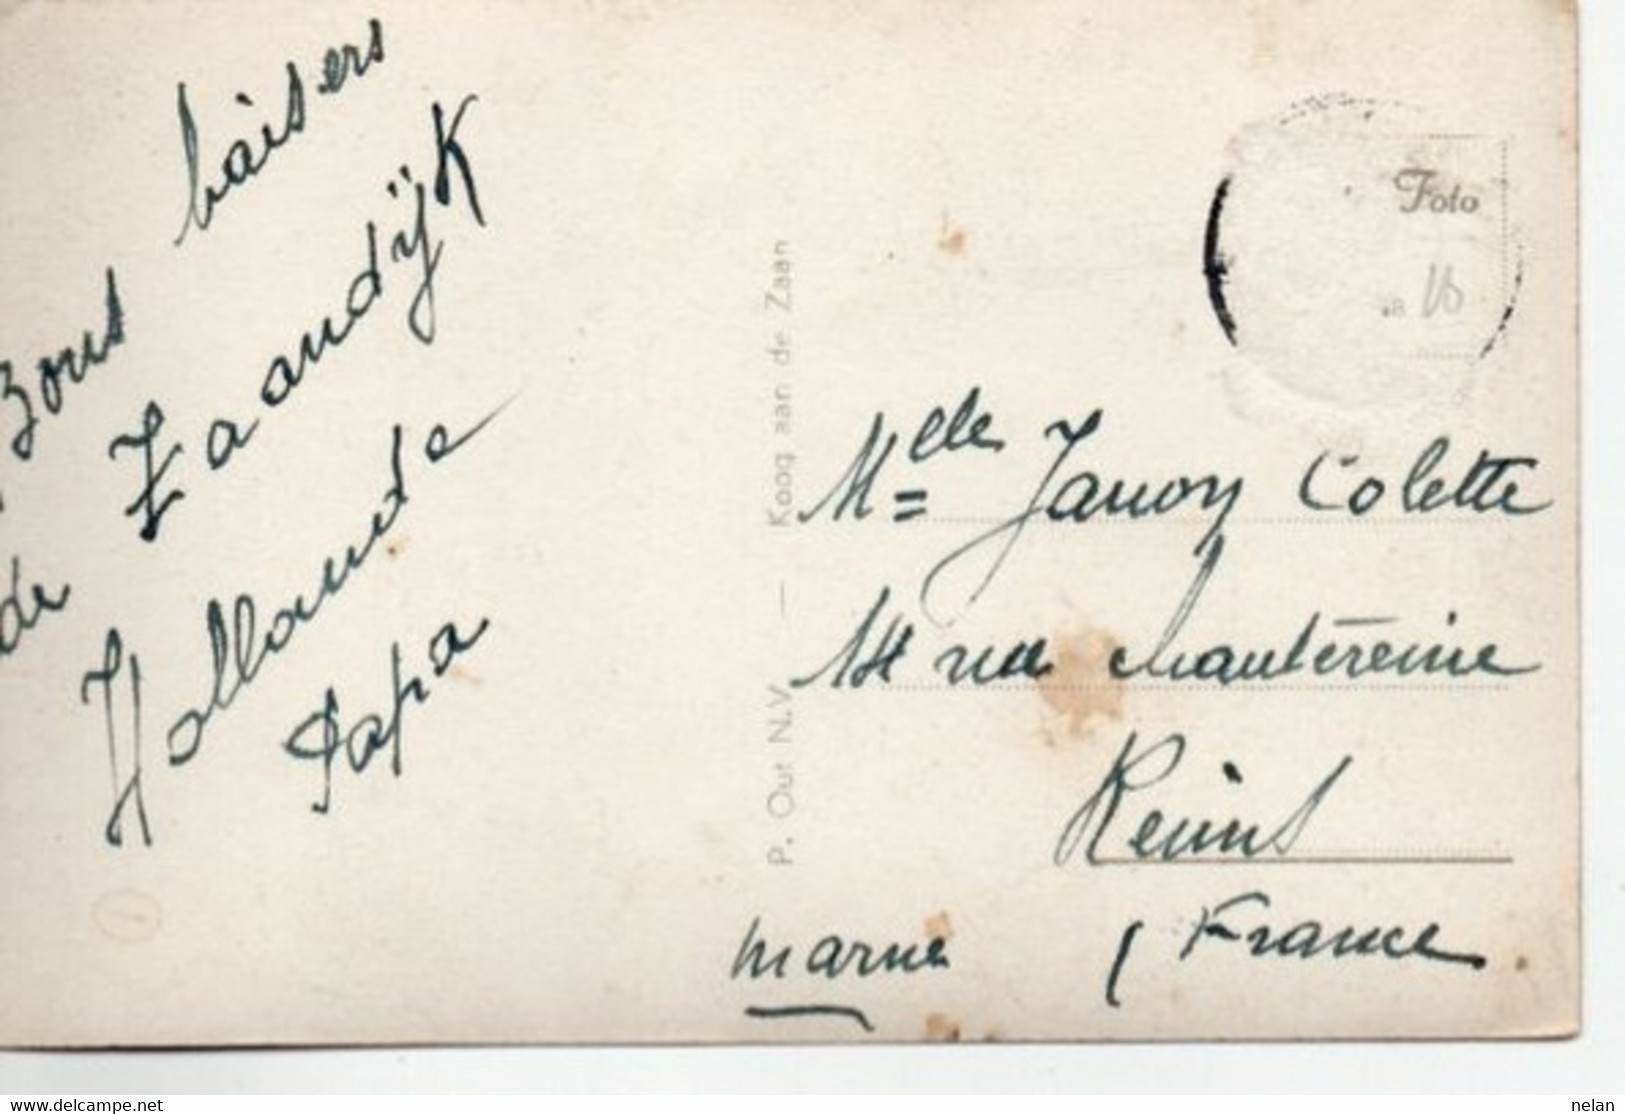 Bons baisers
de Zaandÿk
Hollande
Papa
P. Out N.V. — Koog aan de Zaan
Foto
Mdelle Janon Colette
14 rue Chantereine
Reims
Marne ( France
www.delcampe.net
nelan